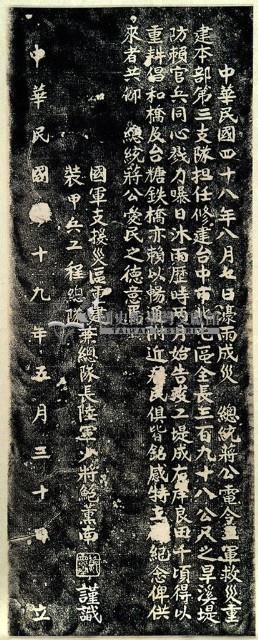 中華民國四十八年八月七日濠雨成災　總統將公電令　軍救災重
建本部第三支隊担任修建台中市北屯區全長三百九十八公尺之旱溪堤
防賴官兵同心戮力曝日沐雨歷時兩月始告竣工堤成右岸良田千頃得以
重耕倡和橋及台糖鉄橋亦賴以暢　附近　民俱皆銘感特立　紀念俾供
來者共仰　總統將公愛民之德意焉
國軍支援災區重建兼總隊長陸軍少將鮑薰南
裝甲兵工程總隊
謹識
中華民國　十九年五月三十　立